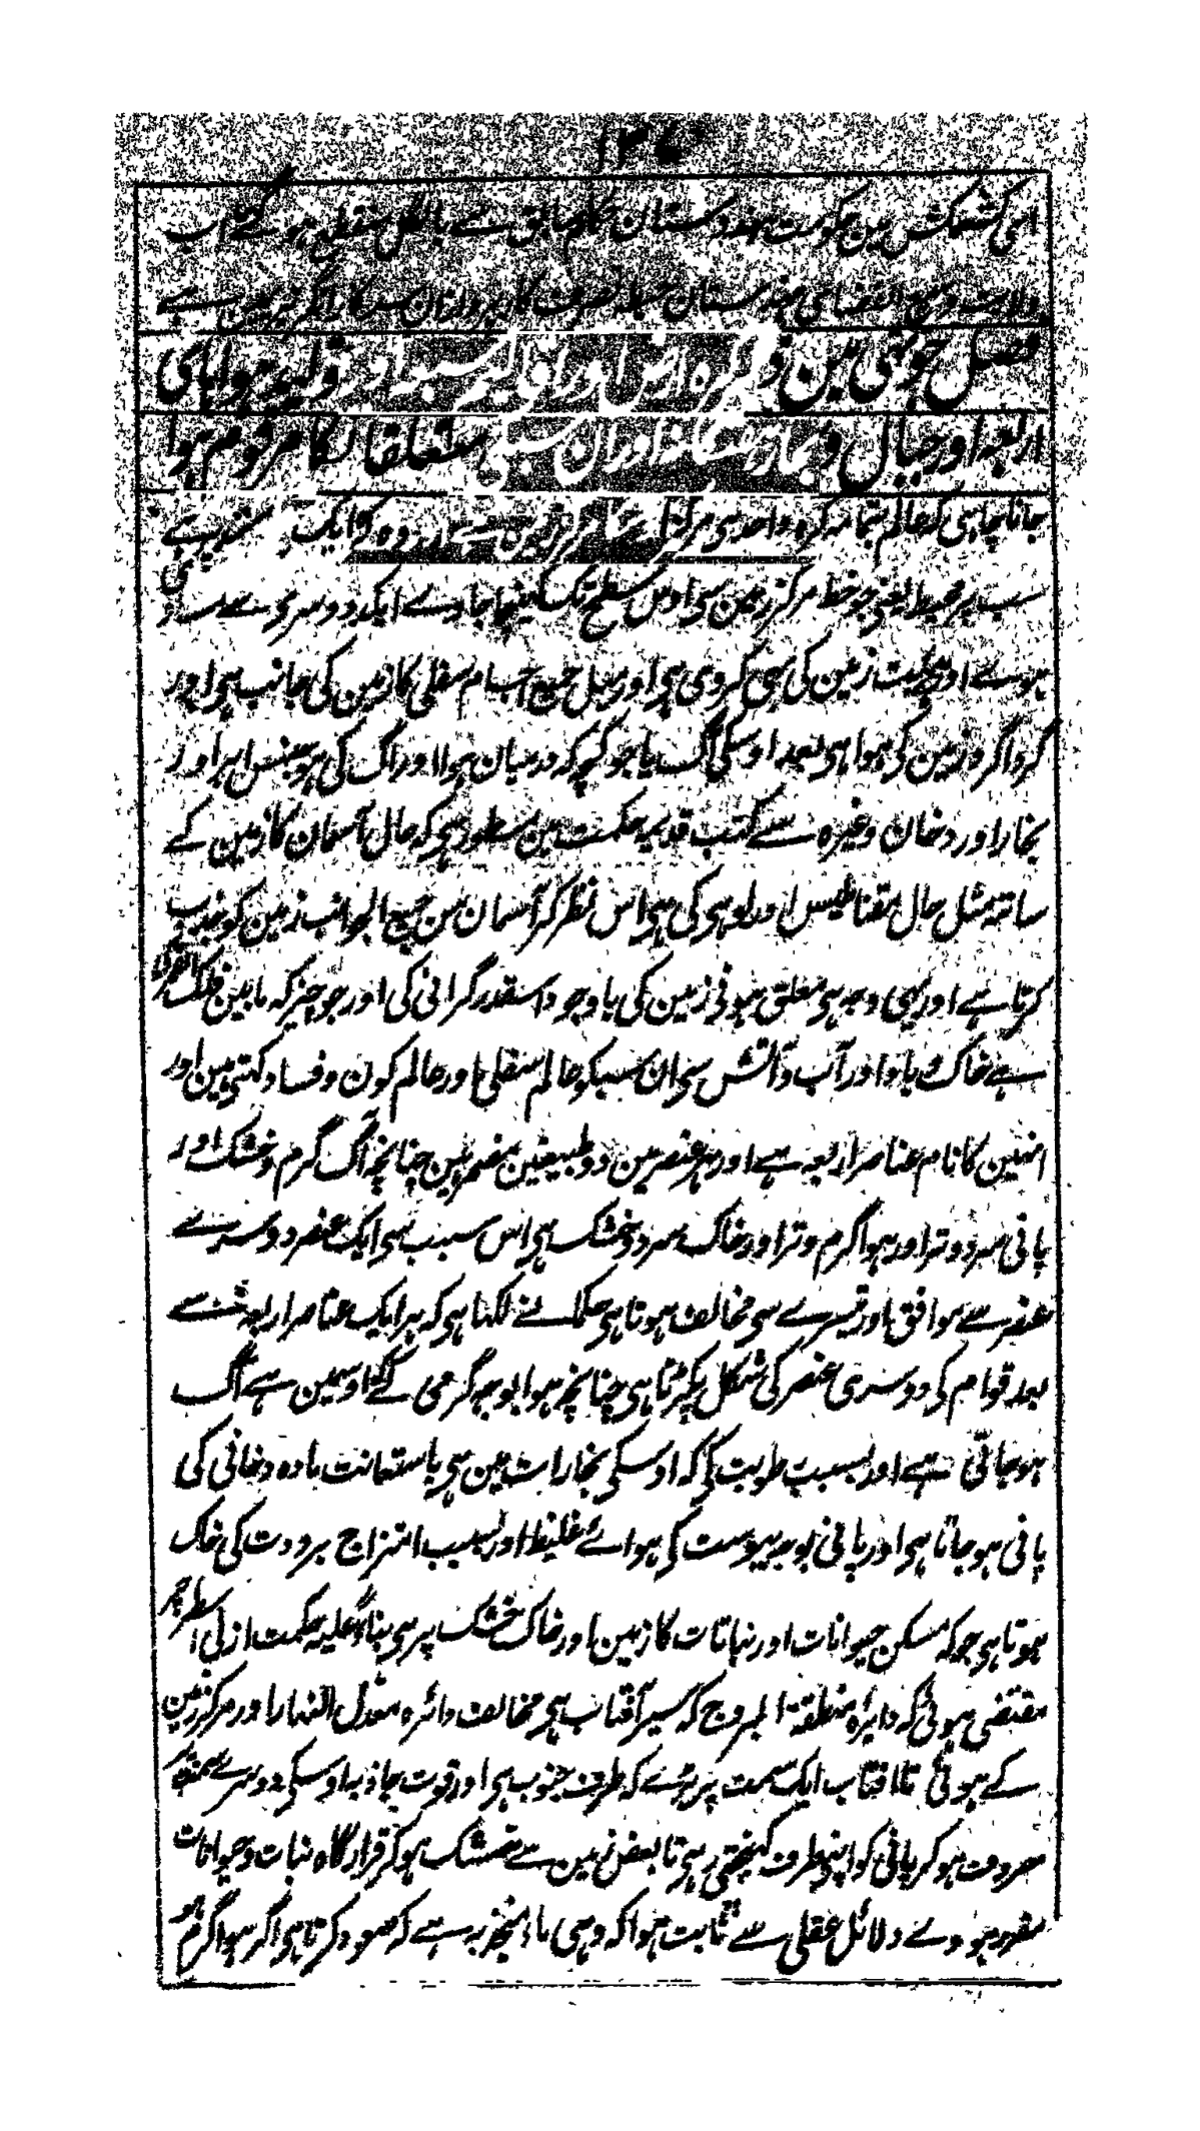 اسی کشمکش مین حکومت ہندوستان حکام سابق سے بالکل منقطع ہو گئے اب
ہندوستان
فصل چوتھی مین ذکر کرہ ارض اور اقالیم سبعہ اور ہوا ہای
اربعہ اور جبال و بحار اور ان متعلقات کا مرقوم ہوا
جانا چاہی کہ عالم بتمامہ کرہ واحد ہی مرکز
سب پر محیط یعنی جو خط مرکز زمین سی اوس سطح تک کھینچا جاوے ایک دوسری سے مساوی
ہووے اور ہیئت زمین کی بھی کروی ہی اور میل جمیع اجسام سفلی کا زمین کی جانب ہی اور
گرداگرد زمین کی ہوا ہی بعد اوسکی آگ یا جو کچھ کہ درمیان ہوا اور آگ کی ہو جنس ابر اور
بخار اور دخان وغیرہ سے کتب قدیمہ حکمت مین مسطور ہی کہ حال آسمان کا زمین کے
ساتہ مثل حال مقناطیس اور لوہی کی ہی اس نظر کر آسمان من جمیع الجوانب زمین کو جذب
کرتا ہے اور یہی وجہ ہی معلق ہونی زمین کی باوجود اسقدر گرانی کی اور جو چیز کہ مابین فلک القمر
ہے خاک و باد اور آب و آتش سی ان سبکو عالم سفلی اور عالم کون و فساد کہتی ہین اور
انہین کا نام عناصر اربعہ ہے اور ہر عنصر مین دو طبیعتین مضمر ہین چنانچہ آگ گرم و خشک اور
پانی سرد و تر اور ہوا گرم و تر اور خاک سرد و خشک ہی اس سبب سی ایک عنصر دوسرے
عنصر سے موافق اور تیسرے سی مخالف ہوتا ہی حکما نے لکہا ہی کہ ہر ایک عناصر اربعہ سے
بعد قوام کی دوسری عنصر کی شکل پکڑتا ہی چنانچہ ہوا بوجہ گرمی کے اوسمین ہے آگ
ہوجاتی ہے اور بسبب رطوبت کی کہ اوسکی بخارات مین ہی باستعانت مادہ دخانی کی
پانی ہو جاتا ہی اور پانی بوجہ یبوست کی ہوائے غلیظ اور بسبب امتزاج برودت کی خاک
ہوتا ہی جو کہ مسکن حیوانات اور نباتات کا زمین اور خاک خشک پر ہی بناءً علیہ حکمت ازلی اسطرح پر
مقتضی ہوئی کہ دایرہ منطقۃ البروج کہ سیر آفتاب ہی مخالف دائرہ معدل النہار اور مرکز زمین
کے ہوئی تا آفتاب ایک سمت پر پڑے کہ طرف جنوب ہی اور قوت جاذبہ اوسکی دوسرے سمت
مصروف ہو کر پانی کو اپنی طرف کہینچتی رہی تا بعض زمین سے خشک ہو کر قرارگاہ نبات و حیوانات
مقرر ہووے دلائل عقلی سے ثابت ہوا کہ وہی ماء منجذبہ ہے کہ صعود کرتا ہی اگر ہوا گرم ہو